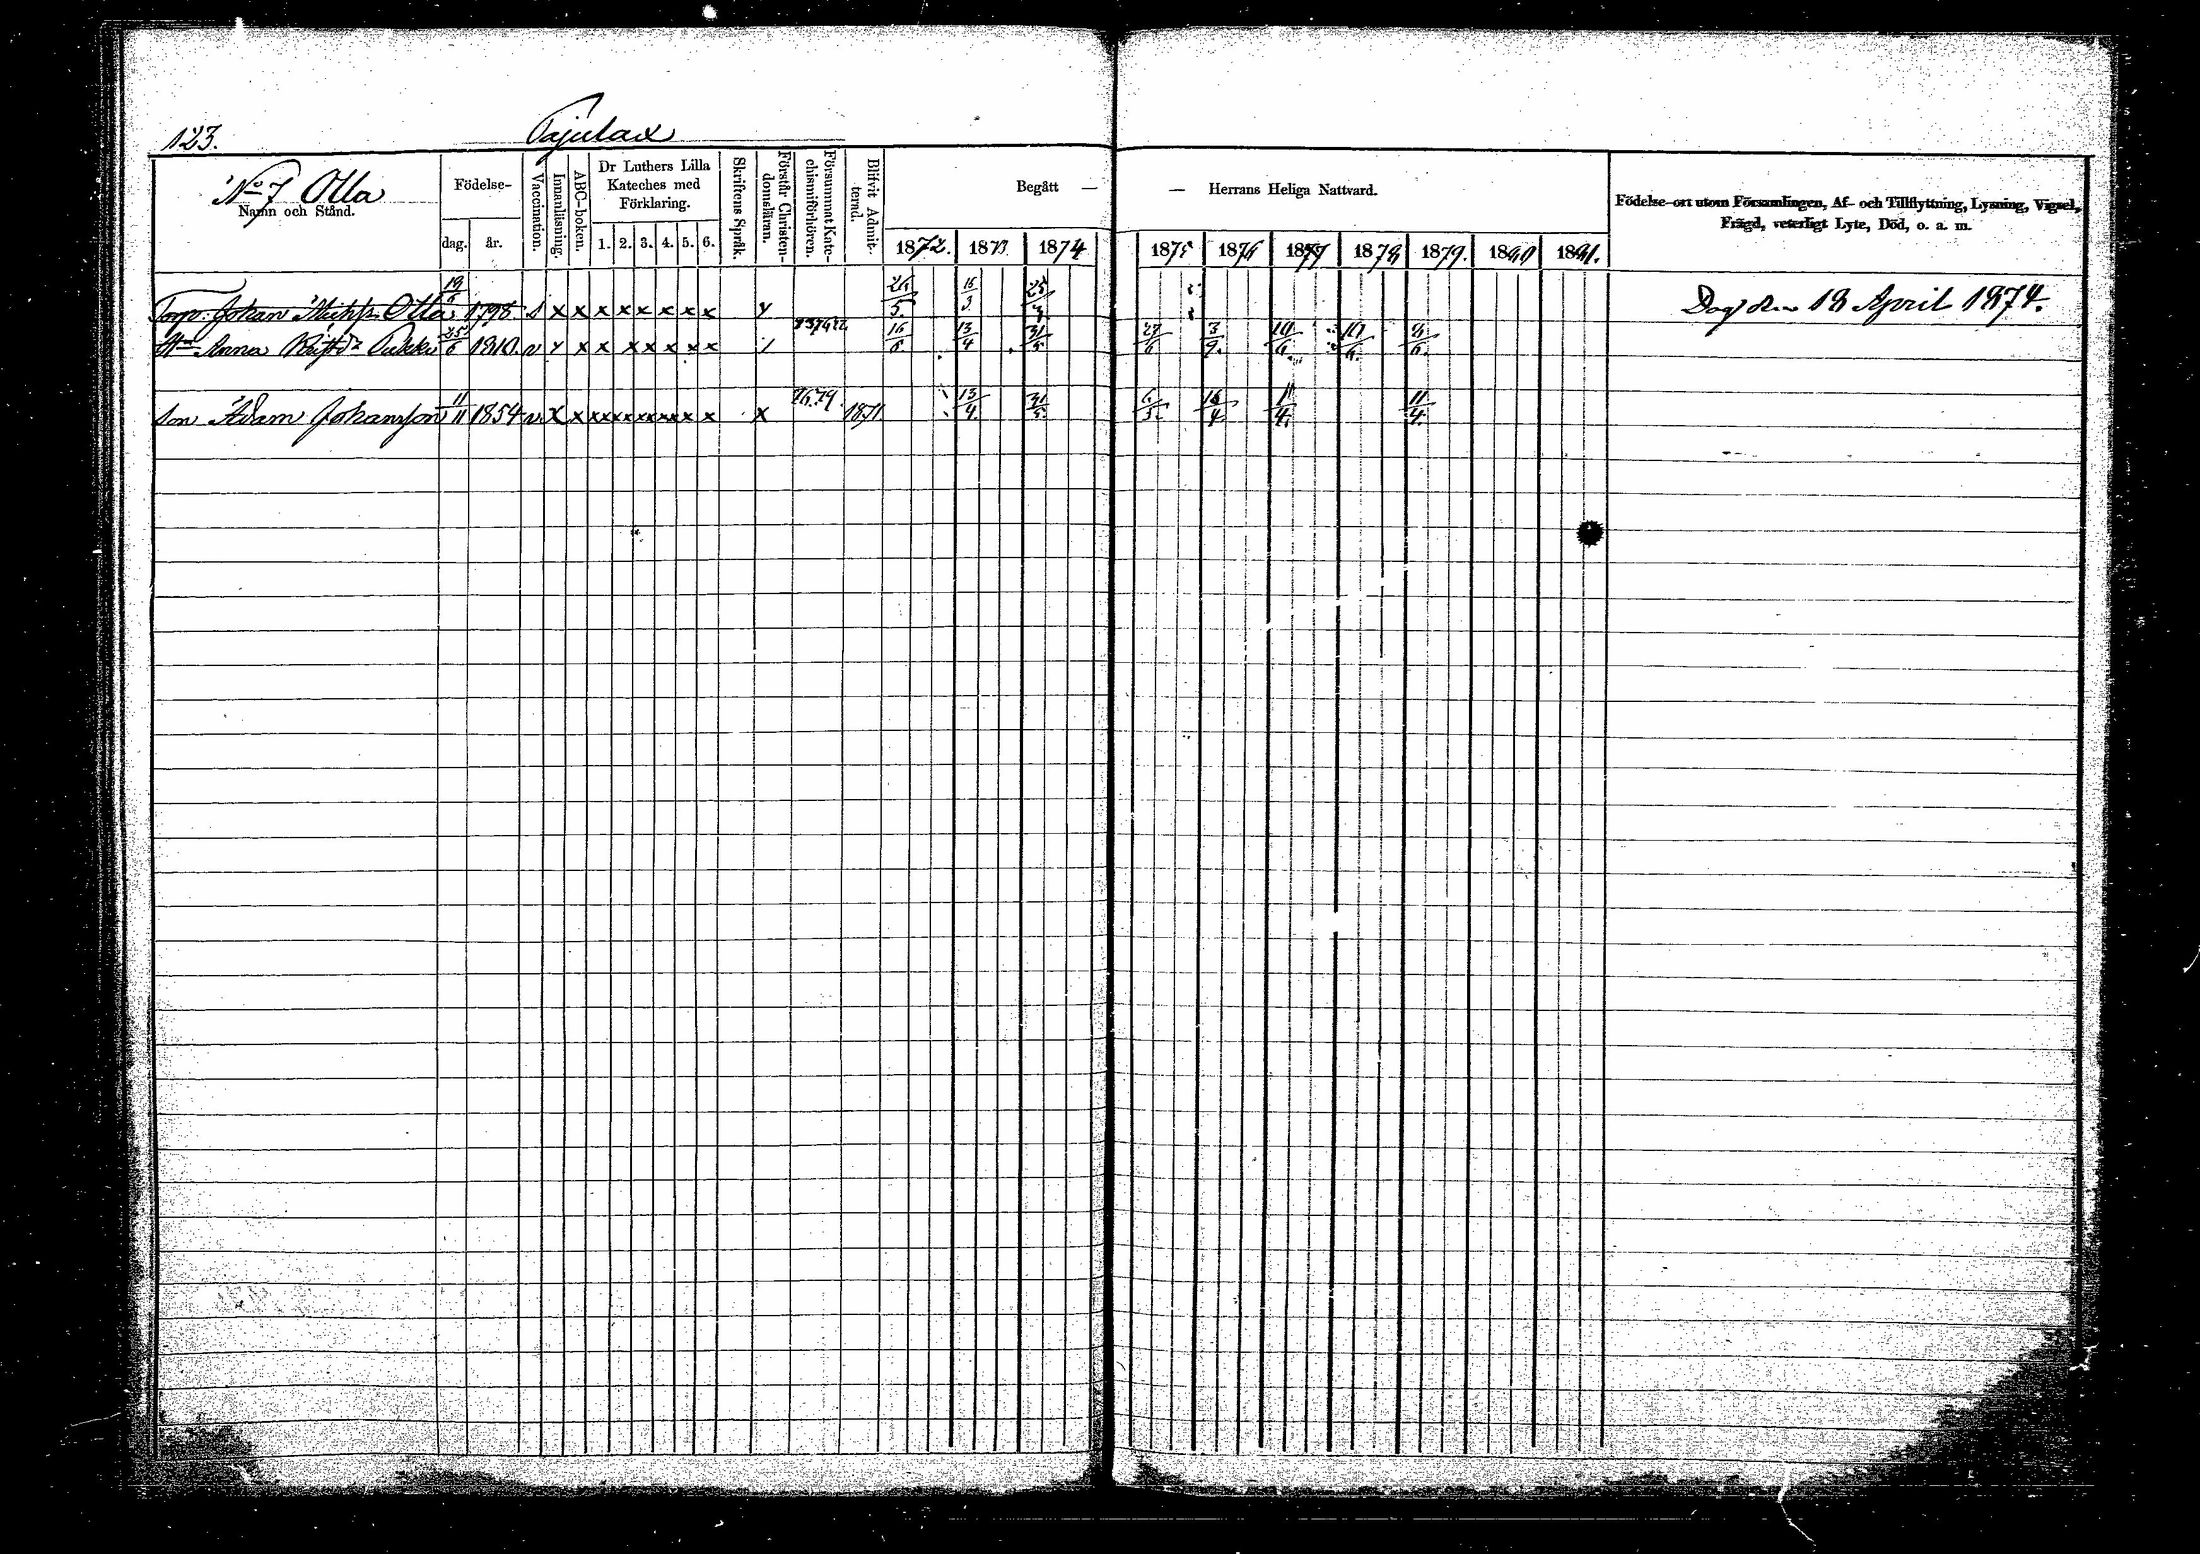 123. Pajulax
No 7 Olla
Namn och Stånd.
Födelse-
dag. år.
Vaccination.
Innanläsning.
ABC-boken.
Dr Luthers Lilla
Kateches med
Förklaring.
1. 2. 3. 4. 5. 6.
Skriftens Språk.
Förstår Christen-
domsläran.
Försummat Kate-
chismiförhören.
Blifvit Admit-
terad.
Begått —
— Herrans Heliga Nattvard.
1872. 1873 1874 1875 1876 1877 1878 1879. 1880 1881.
Födelse-ort utom Församlingen, Af- och Tillflyttning, Lysning, Vigsel,
Frägd, veterligt Lyte, Död, o. a. m.
Torp. Johan Olla 19/6 1798 s x x x x x x x x 26/5. 16/3 Död den 18 April 1874.
Anna 25/6 1810. v x x x x x x x x 16/6. 13/4 31/5 27/6 3/9. 10/6. 4/6.
Son Adam Johansson 11/11 1854 v x x x x x x x x x 76.79. 1871 13/4. 31/5. 6/5. 16/4. 11/4. 11/4.